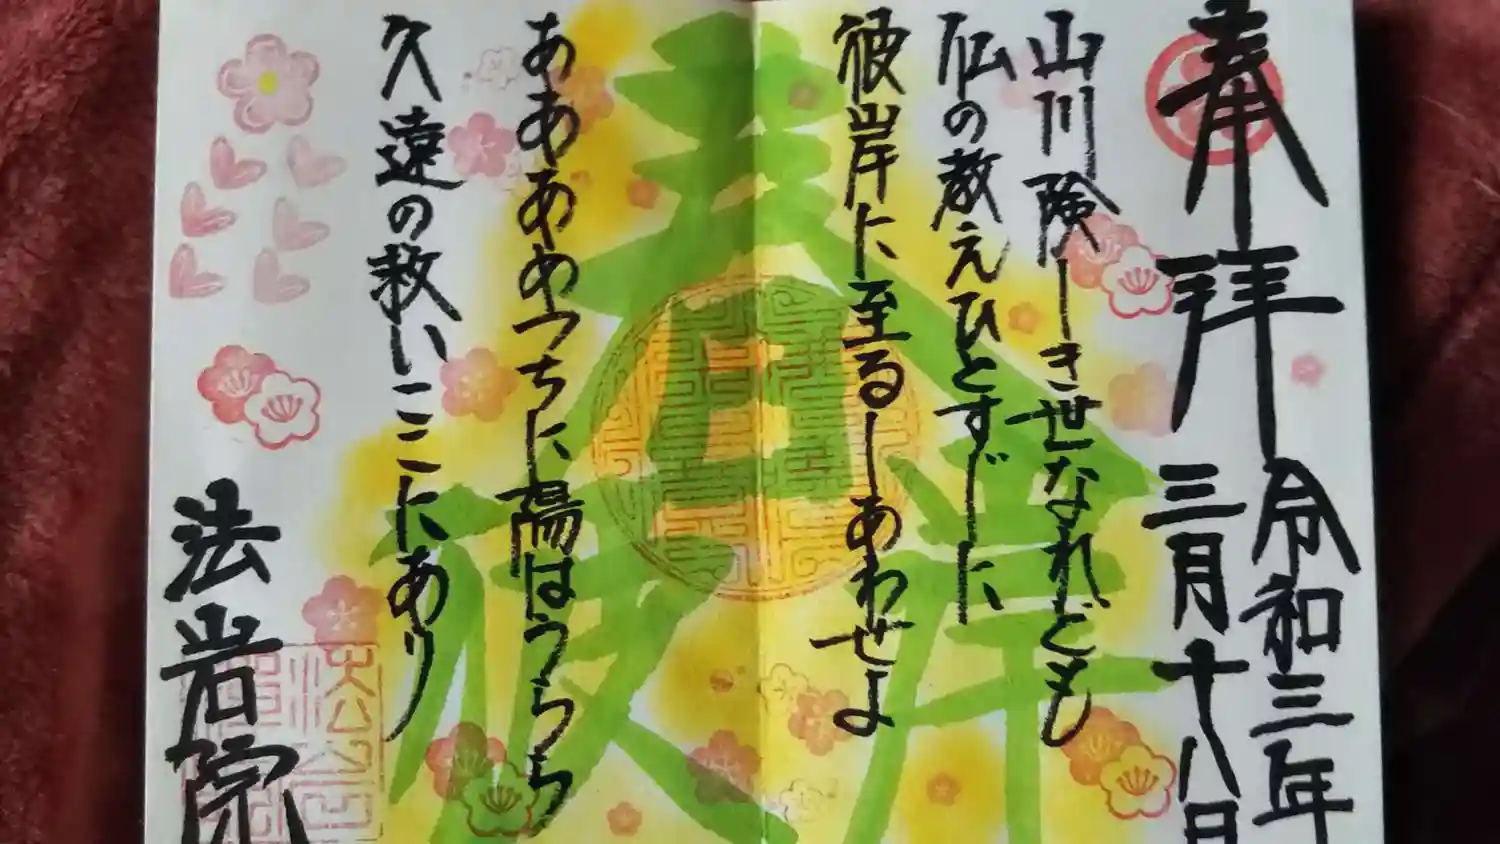 奉拝
令和三年
三月十八日
山川険しき世なれども
仏の教えひとすじに
彼岸に至るしあわせよ
春彼岸
ああああつちに陽はうらら
久遠の救いここにあり
法岩院